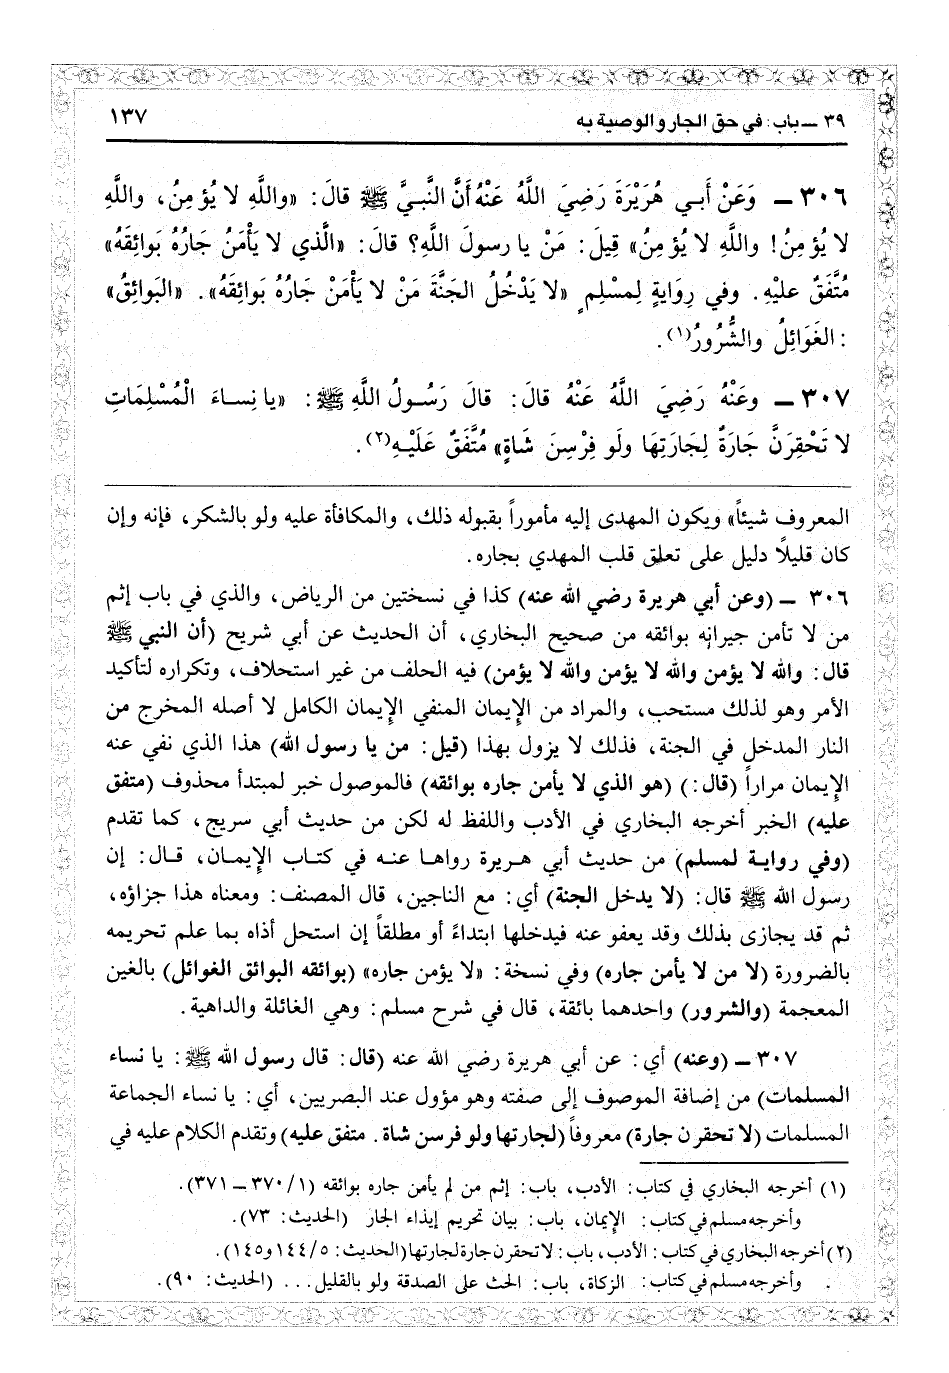 ٣٩ ــ باب: في حق الجار والوصية به
١٣٧
٣٠٦ ــ وَعَنْ أَبـي هُرَيْرَةَ رَضِيَ اللَّهُ عَنْهُ أَنَّ النَّبـيَّ ﷺ قالَ: «واللَّهِ لا يُؤمِنُ، واللَّهِ
لا يُؤمِنُ! واللَّهِ لا يُؤمِنُ» قِيلَ: مَنْ يا رسولَ اللَّهِ؟ قالَ: «الَّذي لا يَأْمَنُ جَارُهُ بَوائِقَهُ»
مُتَّفَقٌ عليْهِ. وفي رِوَايةٍ لِمسْلِمٍ «لا يَدْخُلُ الجَنَّةَ مَنْ لا يَأْمَنُ جَارُهُ بَوائِقَهُ». «البَوائِقُ»
: الغَوَائِلُ والشُّرُورُ(١).
٣٠٧ ــ وعَنْهُ رَضِيَ اللَّهُ عَنْهُ قالَ: قالَ رَسُولُ اللَّهِ ﷺ: «يا نِسـاءَ الْمُسْلِمَاتِ
لا تَحْقِرَنَّ جَارَةٌ لِجَارَتِهَا ولَو فِرْسِنَ شَاةٍ» مُتَّفَقٌ عَلَيْـهِ(٢).
المعروف شيئاً» ويكون المهدى إليه مأموراً بقبوله ذلك، والمكافأة عليه ولو بالشكر، فإنه وإن
كان قليلاً دليل على تعلق قلب المهدي بجاره.
٣٠٦ ــ (وعن أبي هريرة رضي الله عنه) كذا في نسختين من الرياض، والذي في باب إثم
من لا تأمن جيرانه بوائقه من صحيح البخاري، أن الحديث عن أبي شريح (أن النبي ﷺ
قال: والله لا يؤمن والله لا يؤمن والله لا يؤمن) فيه الحلف من غير استحلاف، وتكراره لتأكيد
الأمر وهو لذلك مستحب، والمراد من الإيمان المنفي الإيمان الكامل لا أصله المخرج من
النار المدخل في الجنة، فذلك لا يزول بهذا (قيل: من يا رسول الله) هذا الذي نفي عنه
الإيمان مراراً (قال:) (هو الذي لا يأمن جاره بوائقه) فالموصول خبر لمبتدأ محذوف (متفق
عليه) الخبر أخرجه البخاري في الأدب واللفظ له لكن من حديث أبي سريج، كما تقدم
(وفي روايـة لـمسلم) من حديث أبي هـريرة رواهـا عنـه في كتـاب الإيمـان، قـال: إن
رسول الله ﷺ قال: (لا يدخل الجنة) أي: مع الناجين، قال المصنف: ومعناه هذا جزاؤه،
ثم قد يجازى بذلك وقد يعفو عنه فيدخلها ابتداءً أو مطلقاً إن استحل أذاه بما علم تحريمه
بالضرورة (لا من لا يأمن جاره) وفي نسخة: «لا يؤمن جاره» (بوائقه البوائق الغوائل) بالغين
المعجمة (والشرور) واحدهما بائقة، قال في شرح مسلم: وهي الغائلة والداهية.
٣٠٧ ــ (وعنه) أي: عن أبي هريرة رضي الله عنه (قال: قال رسول الله ﷺ: يا نساء
المسلمات) من إضافة الموصوف إلى صفته وهو مؤول عند البصريين، أي: يا نساء الجماعة
المسلمات (لا تحقرن جارة) معروفاً (لجارتها ولو فرسن شاة. متفق عليه) وتقدم الكلام عليه في
(١) أخرجه البخاري في كتاب: الأدب، باب: إثم من لم يأمن جاره بوائقه (٣٧٠/١ ــ ٣٧١).
وأخرجه مسلم في كتاب: الإيمان، باب: بيان تحريم إيذاء الجار (الحديث: ٧٣).
(٢) أخرجه البخاري في كتاب: الأدب، باب: لا تحقرن جارة لجارتها (الحديث: ١٤٤/٥ و١٤٥).
وأخرجه مسلم في كتاب: الزكاة، باب: الحث على الصدقة ولو بالقليل... (الحديث: ٩٠).